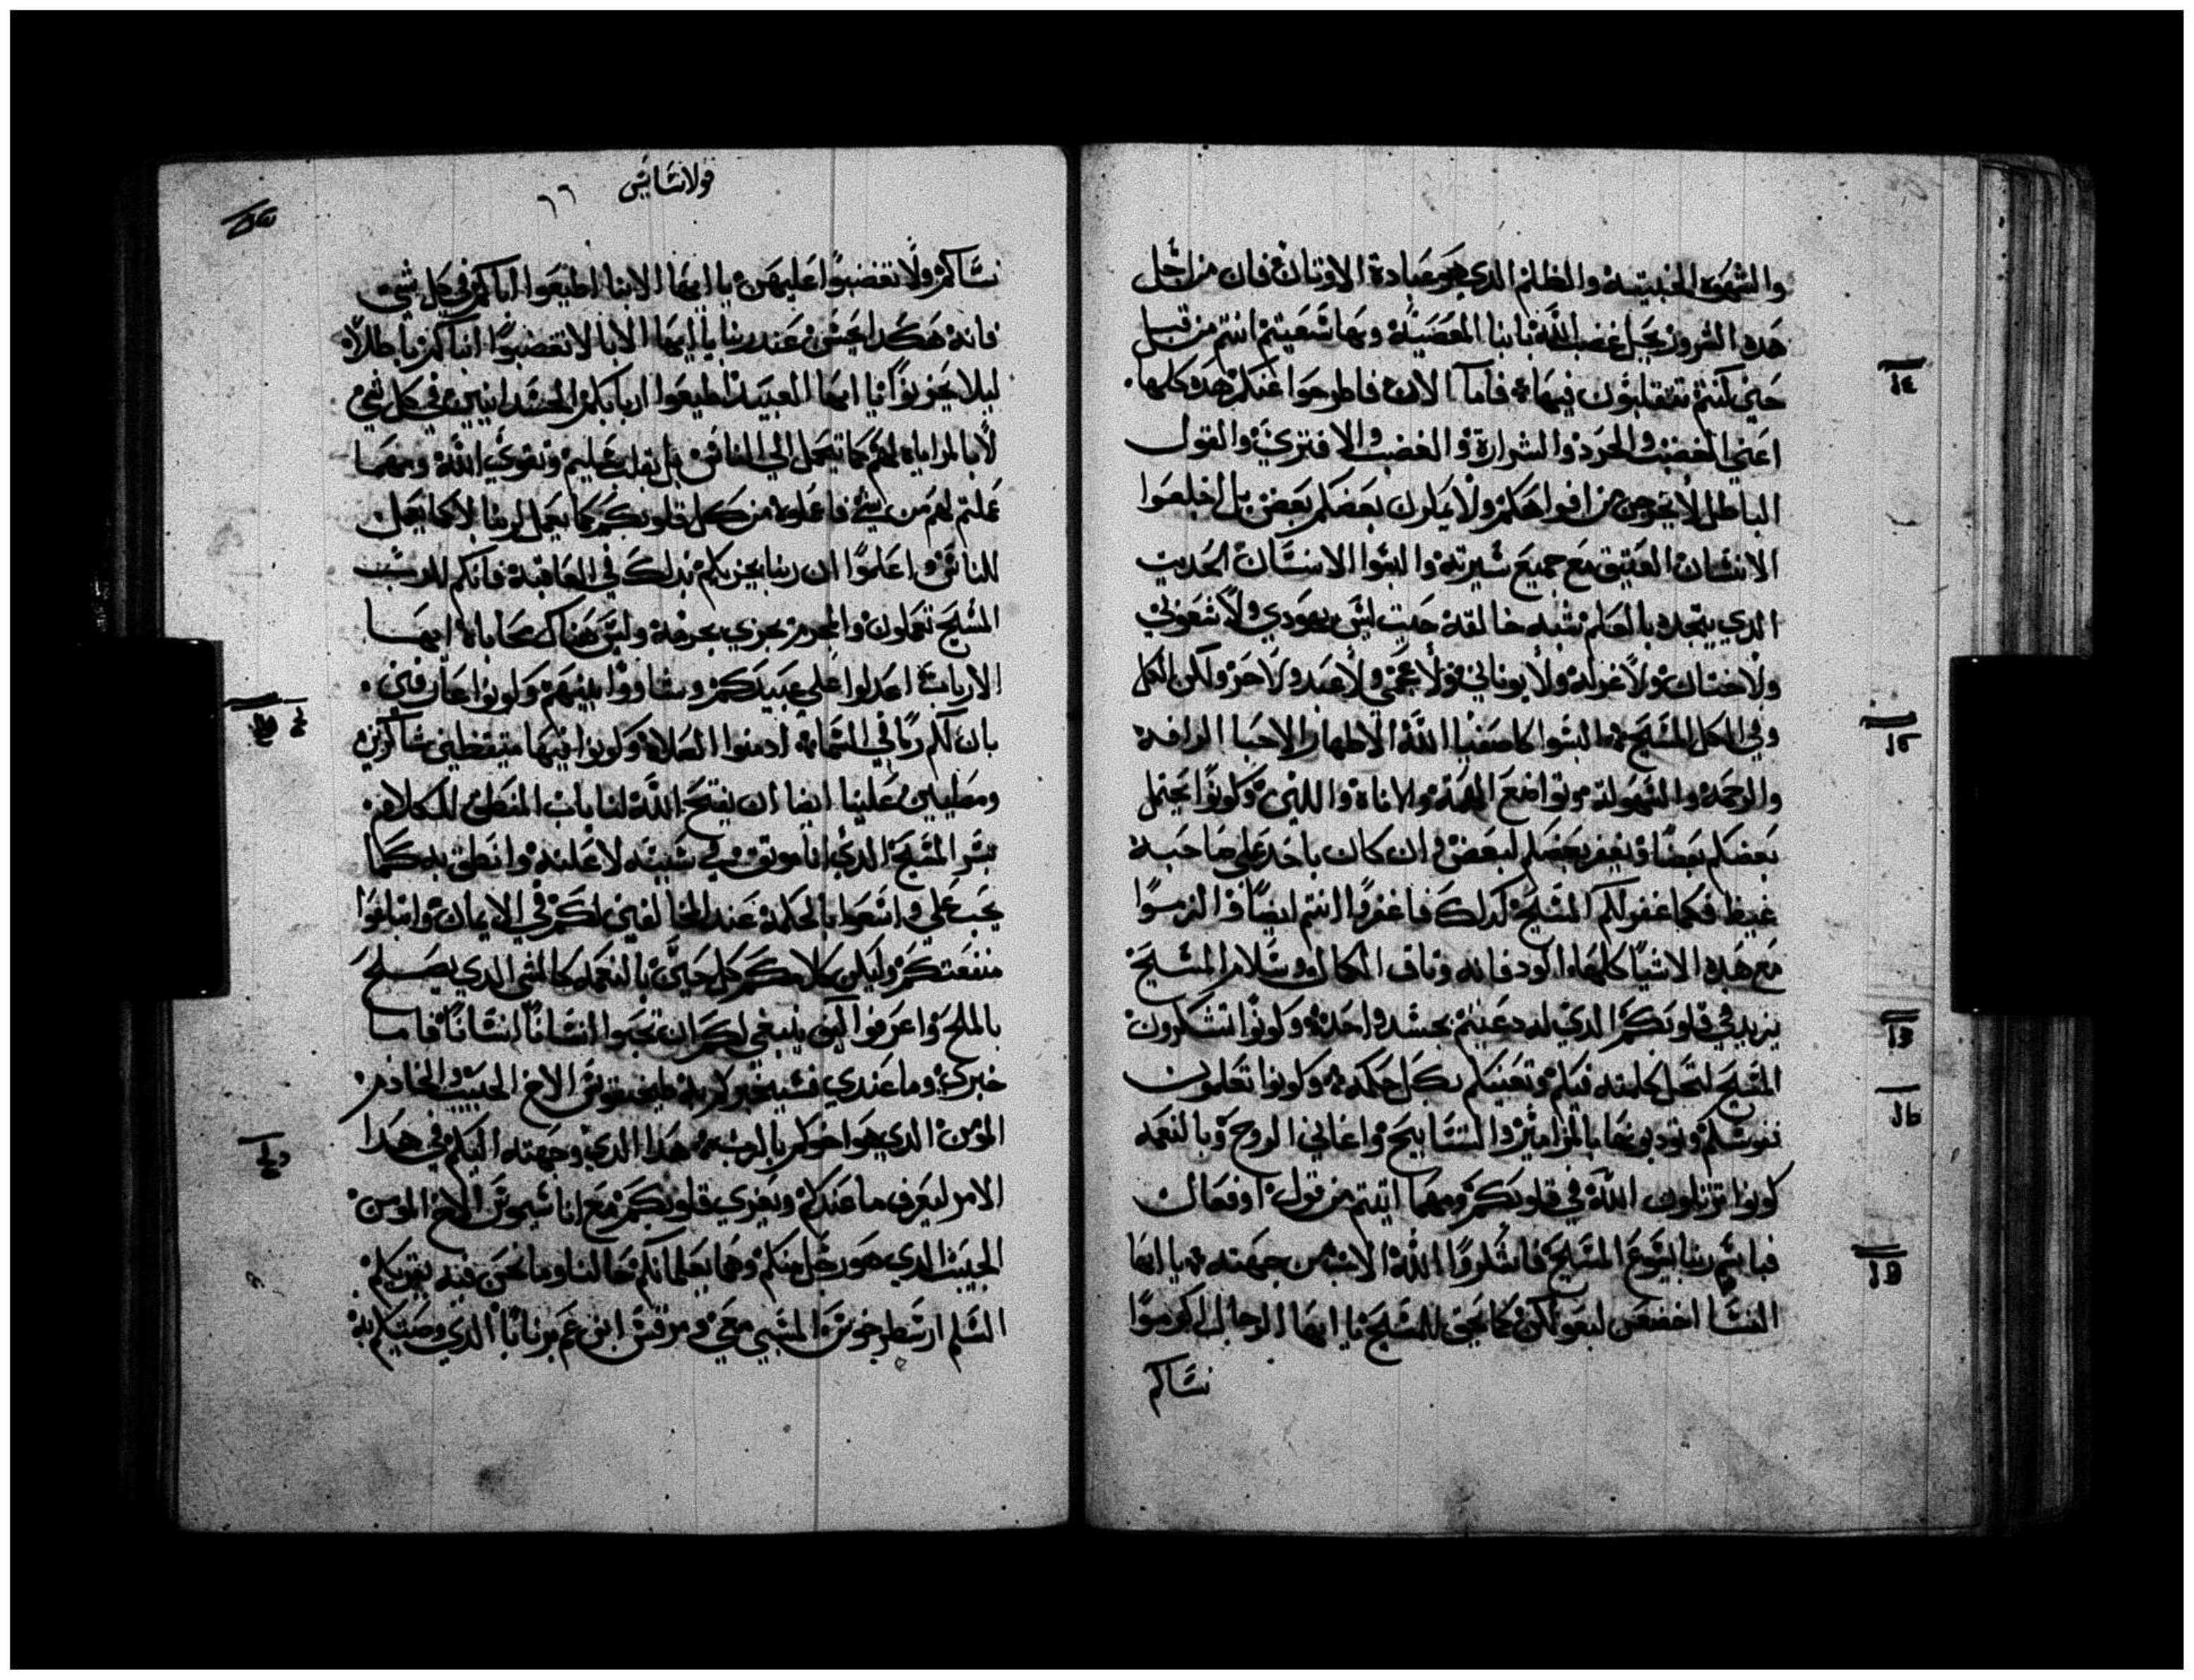 والشهوة الخبيثة والظلم الذي هو عبادة الاوثان فان من اجل
هذه الشرور يحل غضب الله بابنا المعصية وبها سعيتم انتم من قبل
حين كنتم تتقلبون فيها فاما الان فاطرحوا عنكم هذه كلها
اعني الغضب والحرد والشرارة والغضب والافترى والقول
الباطل لا يخرجن من افواهكم ولا بعضكم بعض بل اخلعوا
الانسان العتيق مع جميع سيرته والبسوا الانسان الحديث
الذي يتجدد بالعلم شبه خالقه حيث ليس يهودي ولا شعوبي
ولا ختان ولا غرلة ولا يوناني ولا عجمي ولا عبد ولا حر ولكن الكل
وفي الكل المسيح فالبسوا كاصفيا الله الاطهار الاحبا الرافة
والرحمة والسهولة وتواضع الهمة والاناة واللين وكونوا يحتمل
بعضكم بعضا ويغفر بعضكم لبعض وان كان باحد على صاحبه
غيظ فكما غفر لكم المسيح كذلك فاغفروا انتم ايضا والزموا
مع هذه الاشيا كلها الود فانه وثاق الكمال وسلام المسيح
يزيد في قلوبكم الذي له دعيتم بجسد واحد وكونوا تشكرون
المسيح لتحل كلمته فيكم وتغنيكم بكل حكمة وكونوا تعلمون
نفوسكم وتودبونها بالمزامير والتسابيح واغاني الروح وبالنعمة
كونوا ترتلون الله في قلوبكم ومهما اتيتم من قول او فعال
فباسم ربنا يسوع المسيح فاشكروا الله الاب من جهته يا ايها
النسا اخضعن لبعولتكن كما يحق للمسيح يا ايها الرجال اكرموا
نساكم
قولاسايس
٦٦
نساكم ولا تغضبوا عليهن يا ايها الابنا اطيعوا اباكم في كل شي
فانه هكذا يحسن عند ربنا يا ايها الابا لا تغضبوا ابناكم باطلا
ليلا يحزنوا يا ايها العبيد اطيعوا اربابكم الجسدانيين في كل شي
لا بالمراياة لهم كما يعمل الى الناس بل بقلب سليم وتقوى الله ومهما
عملتم لهم من شي فاعملوه من كل قلوبكم كما يعمل لربنا لا كما يعمل
للناس واعلموا ان ربنا يجزيكم بذلك في العاقبة فانكم للرب
المسيح تعملون والمجرم يجزى بجرمه وليس هناك محاباة ايها
الارباب اعدلوا على عبيدكم وساووا بينهم وكونوا عارفين
بان لكم ربا في السما ادمنوا الصلاة وكونوا فيها متيقظين شاكرين
ومصليين علينا ايضا ان يفتح الله لنا باب المنطق للكلام
بسر المسيح الذي انا موثق في سببه لاعلنه وانطق به كما
يجب علي واسعوا بالحكمة عند المخالفين لكم في الايمان وابتاعوا
منفعتكم وليكن كلامكم كل حين بالنعمة كالشي الذي يصلح
بالملح واعرفوا كيف ينبغي لكم ان تجيبوا انسانا انسانا فاما
خبري وما عندي فسيخبركم به طيخيقوس الاخ الحبيب والخادم
المومن الذي هو اخوكم بالرب هذا الذي وجهته اليكم في هذا
الامر ليعرف ما عندكم ويعزي قلوبكم مع اناسيموس الاخ المومن
الحبيب الذي هو رجل منكم وهما يعلمانكم حالنا وما نحن فيه يقريكم
السلم ارسطرخوس المسبي معي ومرقس ابن عم برنابا الذي وصيتكم به